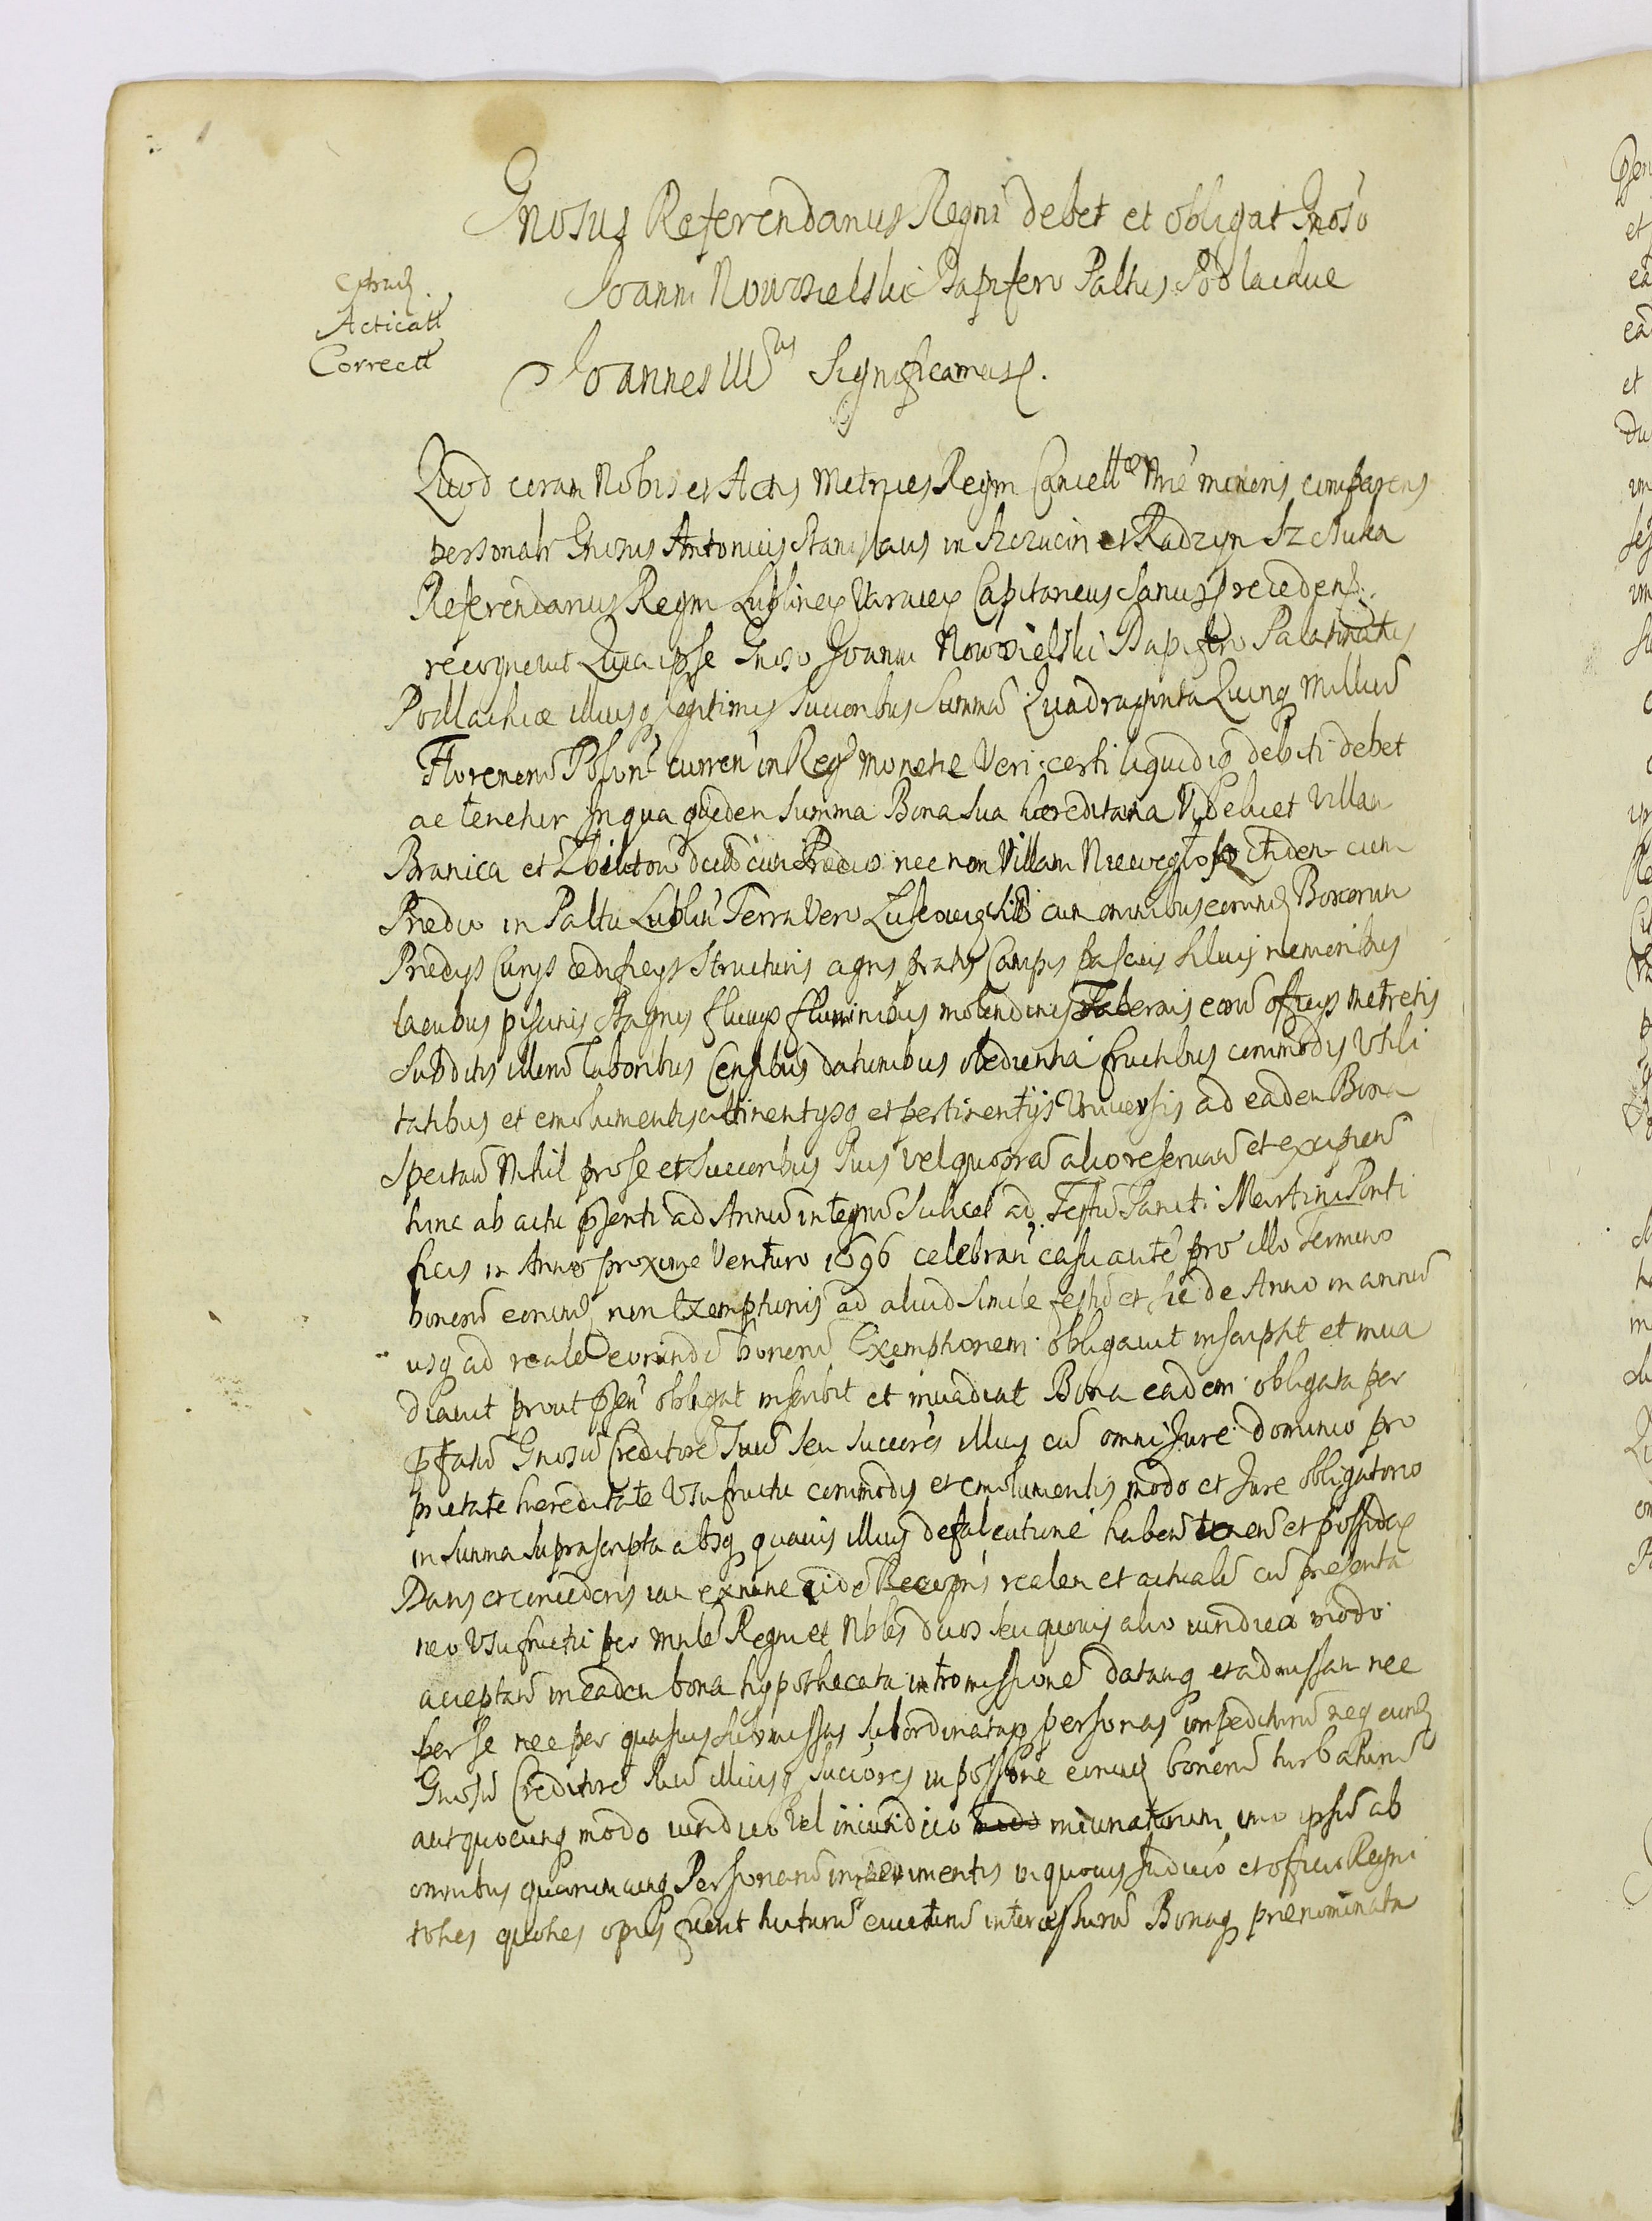 Gnosus Referendarius Regni debet et obligat Gnoso
Joanni Nowosielski Dapifero Paltus Podlachiae
Acticatt
Correctt
Joannes IIIus Significamus
Quod coram Nobis et Actis Metrices Regni Cancellae Nrae minoris comparens
personalr Gnosus Antonius Stanislaus in Szczucin et Radzyn Szczuka
Referendarius Regni Lublinen Varecen Capitaneus Sanus recedens
recognovit Quia ipse Gnoso Joanni Nowosielski Dapifero Palatinatus
Podlachiae illiusq legitimis Succoribus Summā Quadraginta Quinq Milliū
Florenorū Polon curren in Reg monetae Veri certi liquidiq debiti debet
ac tenetur In qua quidem Summa Bona Sua haereditaria Videlicet Villam
Branica et dictā cum Praedio nec non Villam cum
Praedio in Paltu Lublin Terra Vero Lukovien cum omnibus eorund Bonorum
Praedys Curys aedificys Structuris agris pratis Campis pascuis Siluis nemoribus
lacubus piscinis Stagnis fluuys fluminibus molendinis Tabernis eorū officys metretis
Subditis illorū laboribus Censibus dationibus obedientia fructibus commodis Utili
tatibus et emolumentis attinentysq et pertinentijs Universis ad eadem Bona
Spectan Nihil pro se et Succoribus Suis vel quopiā alio reservanū et excipienū
hinc ab actu pnti ad Annū integrū Scilicet ad Festū Sancti Martini Ponti
ficis in Anno proxime Venturo 1696 celebran casu autē pro illo Termino
bonorū eorund non Exemptionis ad aliud Simile festū et sic de Anno in annū
usq ad realē eorundē bonorū Exemptionem obligavit inscripsit et inva
diavit prout psen obligat inscribit et invadiat Bona eadem obligata per
pfatū Gnosū Creditorē Suū Seu Succores illius cū omni Jure dominio pro
prietate haereditate Usufructu commodis et emolumentis modo et Jure obligatorio
in Summa Suprascripta absq quavis illius defalcatione haben tenen et possiden
Dans et concedens iam ex nunc eidē realem et actualē cū praesenta
neo Usufructu per Mnle Regni et Nbles duos Seu quovis alio iuridico modo
acceptanū in eadem bona hypothecata intromissionē datamq et admissam nec
per se nec per quasvis Submissas Subordinatasq personas impediturū neq eund
Gnosū Creditorē Suū illiusq Succores in possione eorund bonorū turbaturū
aut quocunq modo iuridico vel iniuridico modo imo ipsū ab
omnibus quarumcunq Personarū impedimentis in quovis Judicio et officio Regni
toties quoties opus fuerit tuturū evicturū intercessurū Bonaq praenominata